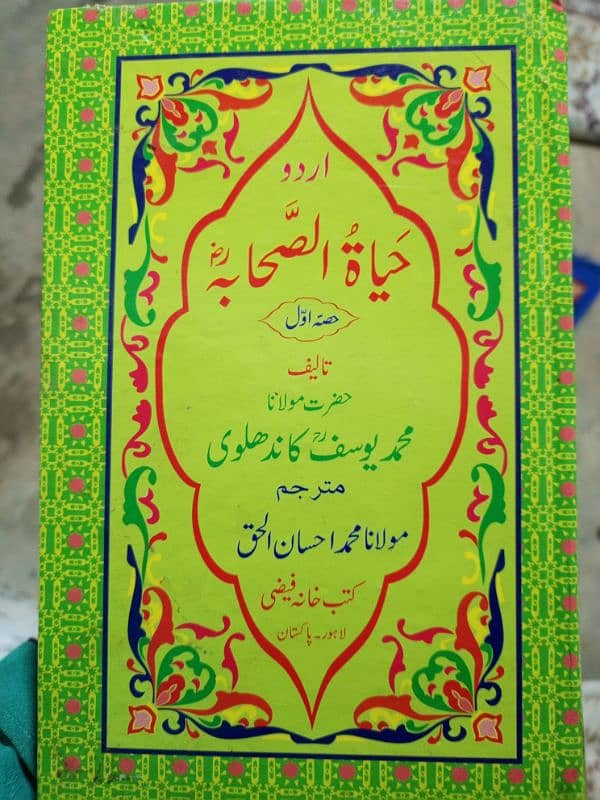 اردو
حَیاۃُ الصَّحابہ رضؓ
حصہ اوّل
تالیف
حضرت مولانا
محمد یوسف رحؒ کاندھلوی
مترجم
مولانا محمد احسان الحق
کتب خانہ فیضی
لاہور - پاکستان